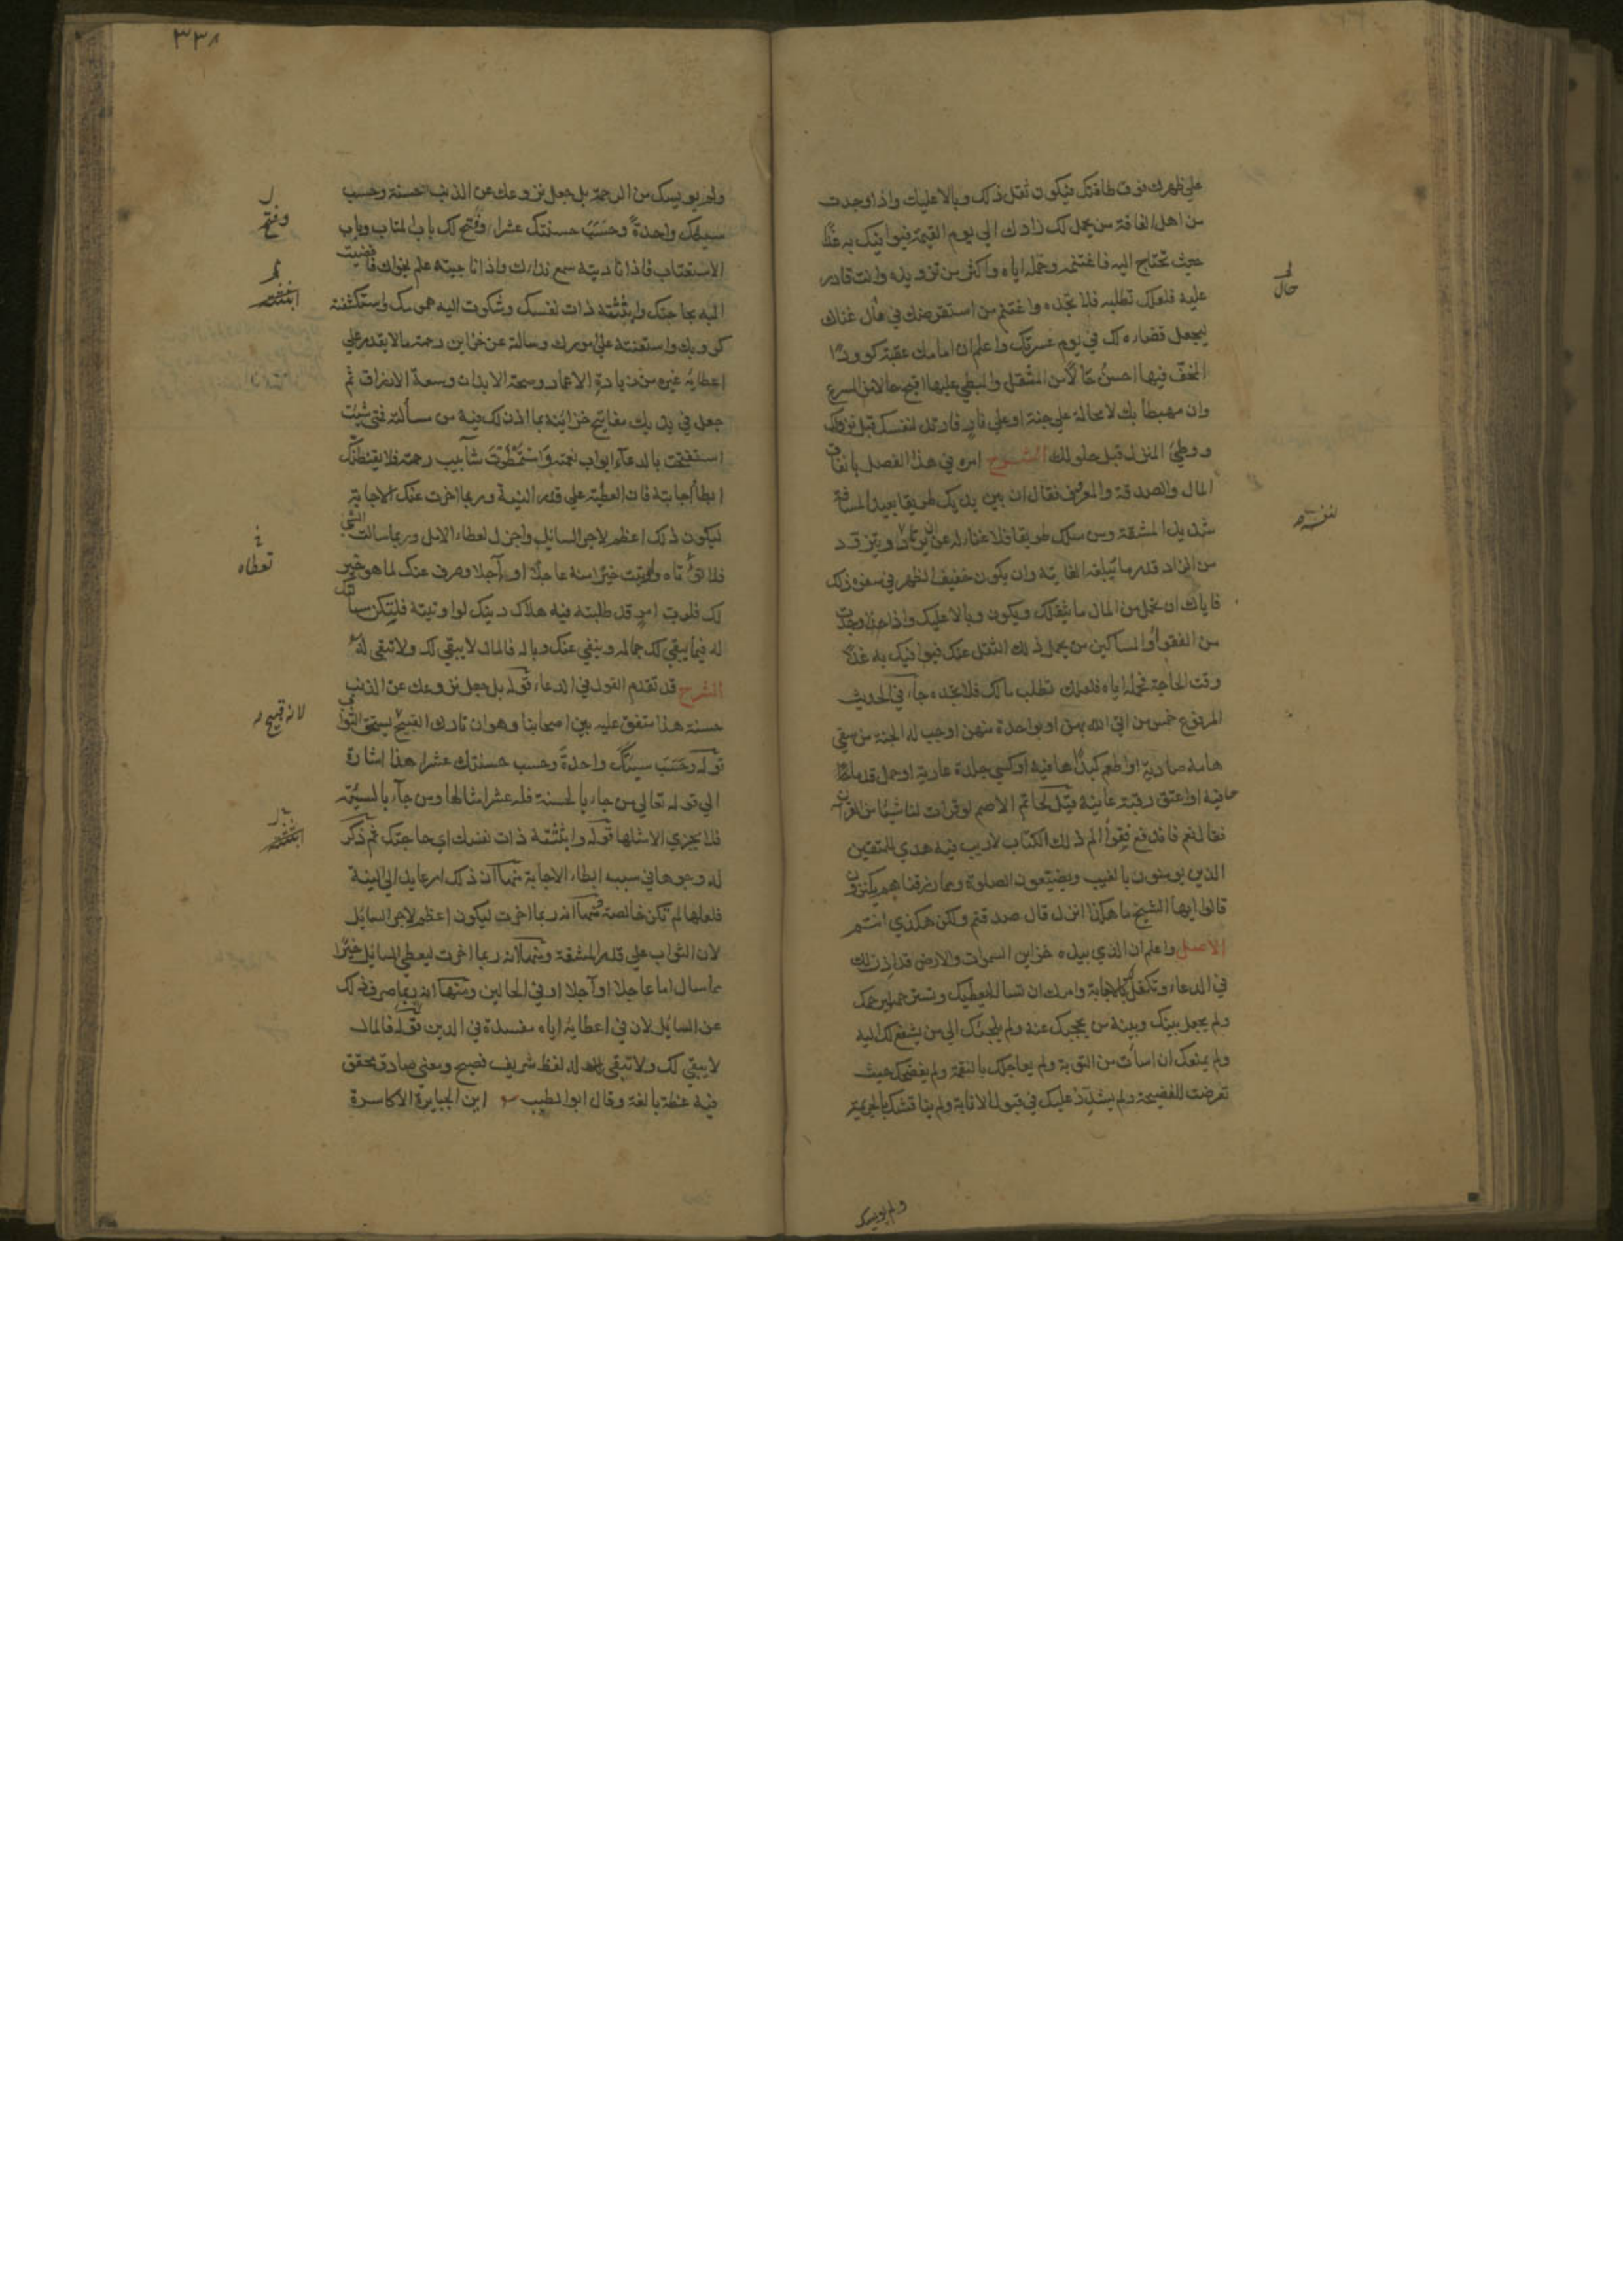 على ظهرك فوق طاقتك فيكون ثقل ذلك وبالا عليك واذا وجدت
من اهل الفاقة من يحمل لك زادك الى يوم القيمة فيوافيك به غدا
حيث تحتاج اليه فاغتنمه وحمله اياه واكثر من تزويده وانت قادر
عليه فلعلك تطلبه فلا تجده واغتنم من استقرضك في حال غناك
ليجعل قضاءه لك في يوم عسرتك واعلم ان امامك عقبة كؤودا
المخف فيها احسن حالا من المثقل والمبطي عليها اقبح حالا من المسرع
وان مهبطا بك لا محالة على جنة او على نار فارتد لنفسك قبل نزولك
ووطئ المنزل قبل حلولك الشرح امره في هذا الفصل بانفاق
المال والصدقة والمعروف فقال ان بين يديك طريقا بعيد المسافة
شديد المشقة ومن سلك طريقا فلا غناء له عن ان يرتاد ويتزود
من الزاد قدر ما يبلغه الغاية وان يكون خفيف الظهر في سفره ذلك
فاياك ان تحمل من المال ما يثقلك ويكون وبالا عليك واذا وجدت
من الفقراء والمساكين من يحمل ذلك الثقل عنك فيوافيك به غدا
وقت الحاجة فحمله اياه فلعلك تطلب مالك فلا تجده جاء في الحديث
المرفوع خمس من اتى الله بهن او بواحدة منهن اوجب له الجنة من سقى
هامة صادية او اطعم كبدا هافية او كسى جلدة عارية او حمل قدما
حافية او اعتق رقبة عانية قيل لحاتم الاصم لو قرات لنا شيئا من القرآن
فقال نعم فاندفع فقرأ الم ذلك الكتاب لا ريب فيه هدي للمتقين
الذين يومنون بالغيب ويقيمون الصلوة ومما رزقناهم يكنزون
قالوا ايها الشيخ ما هكذا انزل قال صدقتم ولكن هكذي انتم
الاصل واعلم ان الذي بيده خزاين السموات والارض قد اذن لك
في الدعاء وتكفل لك بالاجابة وامرك ان تساله ليعطيك وتسترحمه ليرحمك
ولم يجعل بينك وبينه من يحجبك عنه ولم يلجئك الى من يشفع لك اليه
ولم يمنعك ان اسأت من التوبة ولم يعاجلك بالنقمة ولم يفضحك حيث
تعرضت للفضيحة ولم يشدد عليك في قبول الانابة ولم يناقشك بالجريمة
ولم يويسك
حال
٣٣٨
ولم يويسك من الرحمة بل جعل نزوعك عن الذنب حسنة وحسب
سيئتك واحدة وحسب حسنتك عشرا وفتح لك باب المتاب وباب
الاستعتاب فاذا ناديته سمع نداءك واذا ناجيته علم نجواك فافضيت
اليه بحاجتك وابثثته ذات نفسك وشكوت اليه همومك واستكشفته
كروبك واستعنته على امورك وسالته من خزاين رحمته ما لا يقدر على
اعطايه غيره من زيادة الاعمار وصحة الابدان وسعة الارزاق ثم
جعل في يديك مفاتيح خزاينه بما اذن لك فيه من مسألته فمتى شئت
استفتحت بالدعآء ابواب نعمته واستمطرت شآبيب رحمته فلا يقنطنك
ابطأ اجابته فان العطية على قدر النية وربما اخرت عنك الاجابة
ليكون ذلك اعظم لاجر السايل واجزل لعطاء الامل وربما سالت الشئ
فلا تؤتاه واوتيت خيرا منه عاجلا او آجلا وصرف عنك لما هو خير
لك فلرب امر قد طلبته فيه هلاك دينك لو اوتيته فلتكن مسألتك
له فيما يبقى لك جماله وينفي عنك وباله فالمال لا يبقى لك ولا تبقى له
الشرح قد تقدم القول في الدعاء قوله بل جعل نزوعك عن الذنب
حسنة هذا متفق عليه بين اصحابنا وهو ان تارك القبيح يستحق الثواب
قوله وحسب سيئتك واحدة وحسب حسنتك عشرا هذا اشارة
الى قوله تعالى من جاء بالحسنة فله عشر امثالها ومن جآء بالسيئة
فلا يجزي الا مثلها قوله وابثثته ذات نفسك اي حاجتك ثم ذكر
له وجوها في سبب ابطاء الاجابة منها ان ذلك امر عايد الى النية
فلعلها لم تكن خالصة ومنها انه ربما اخرت ليكون اعظم لاجر السايل
لان الثواب على قدر المشقة ومنها انه ربما اخرت ليعطي السايل خيرا
مما سال اما عاجلا او آجلا او في الحالين ومنها انه ربما صرف ذلك
عن السايل لان في اعطايه اياه مفسدة في الدين قوله فالمال
لا يبقى لك ولا تبقى له لفظ شريف فصيح ومعنى صادق محقق
فيه عظة بالغة وقال ابو الطيب اين الجبابرة الاكاسرة
وفتح
تعطاه
لانه قبيح